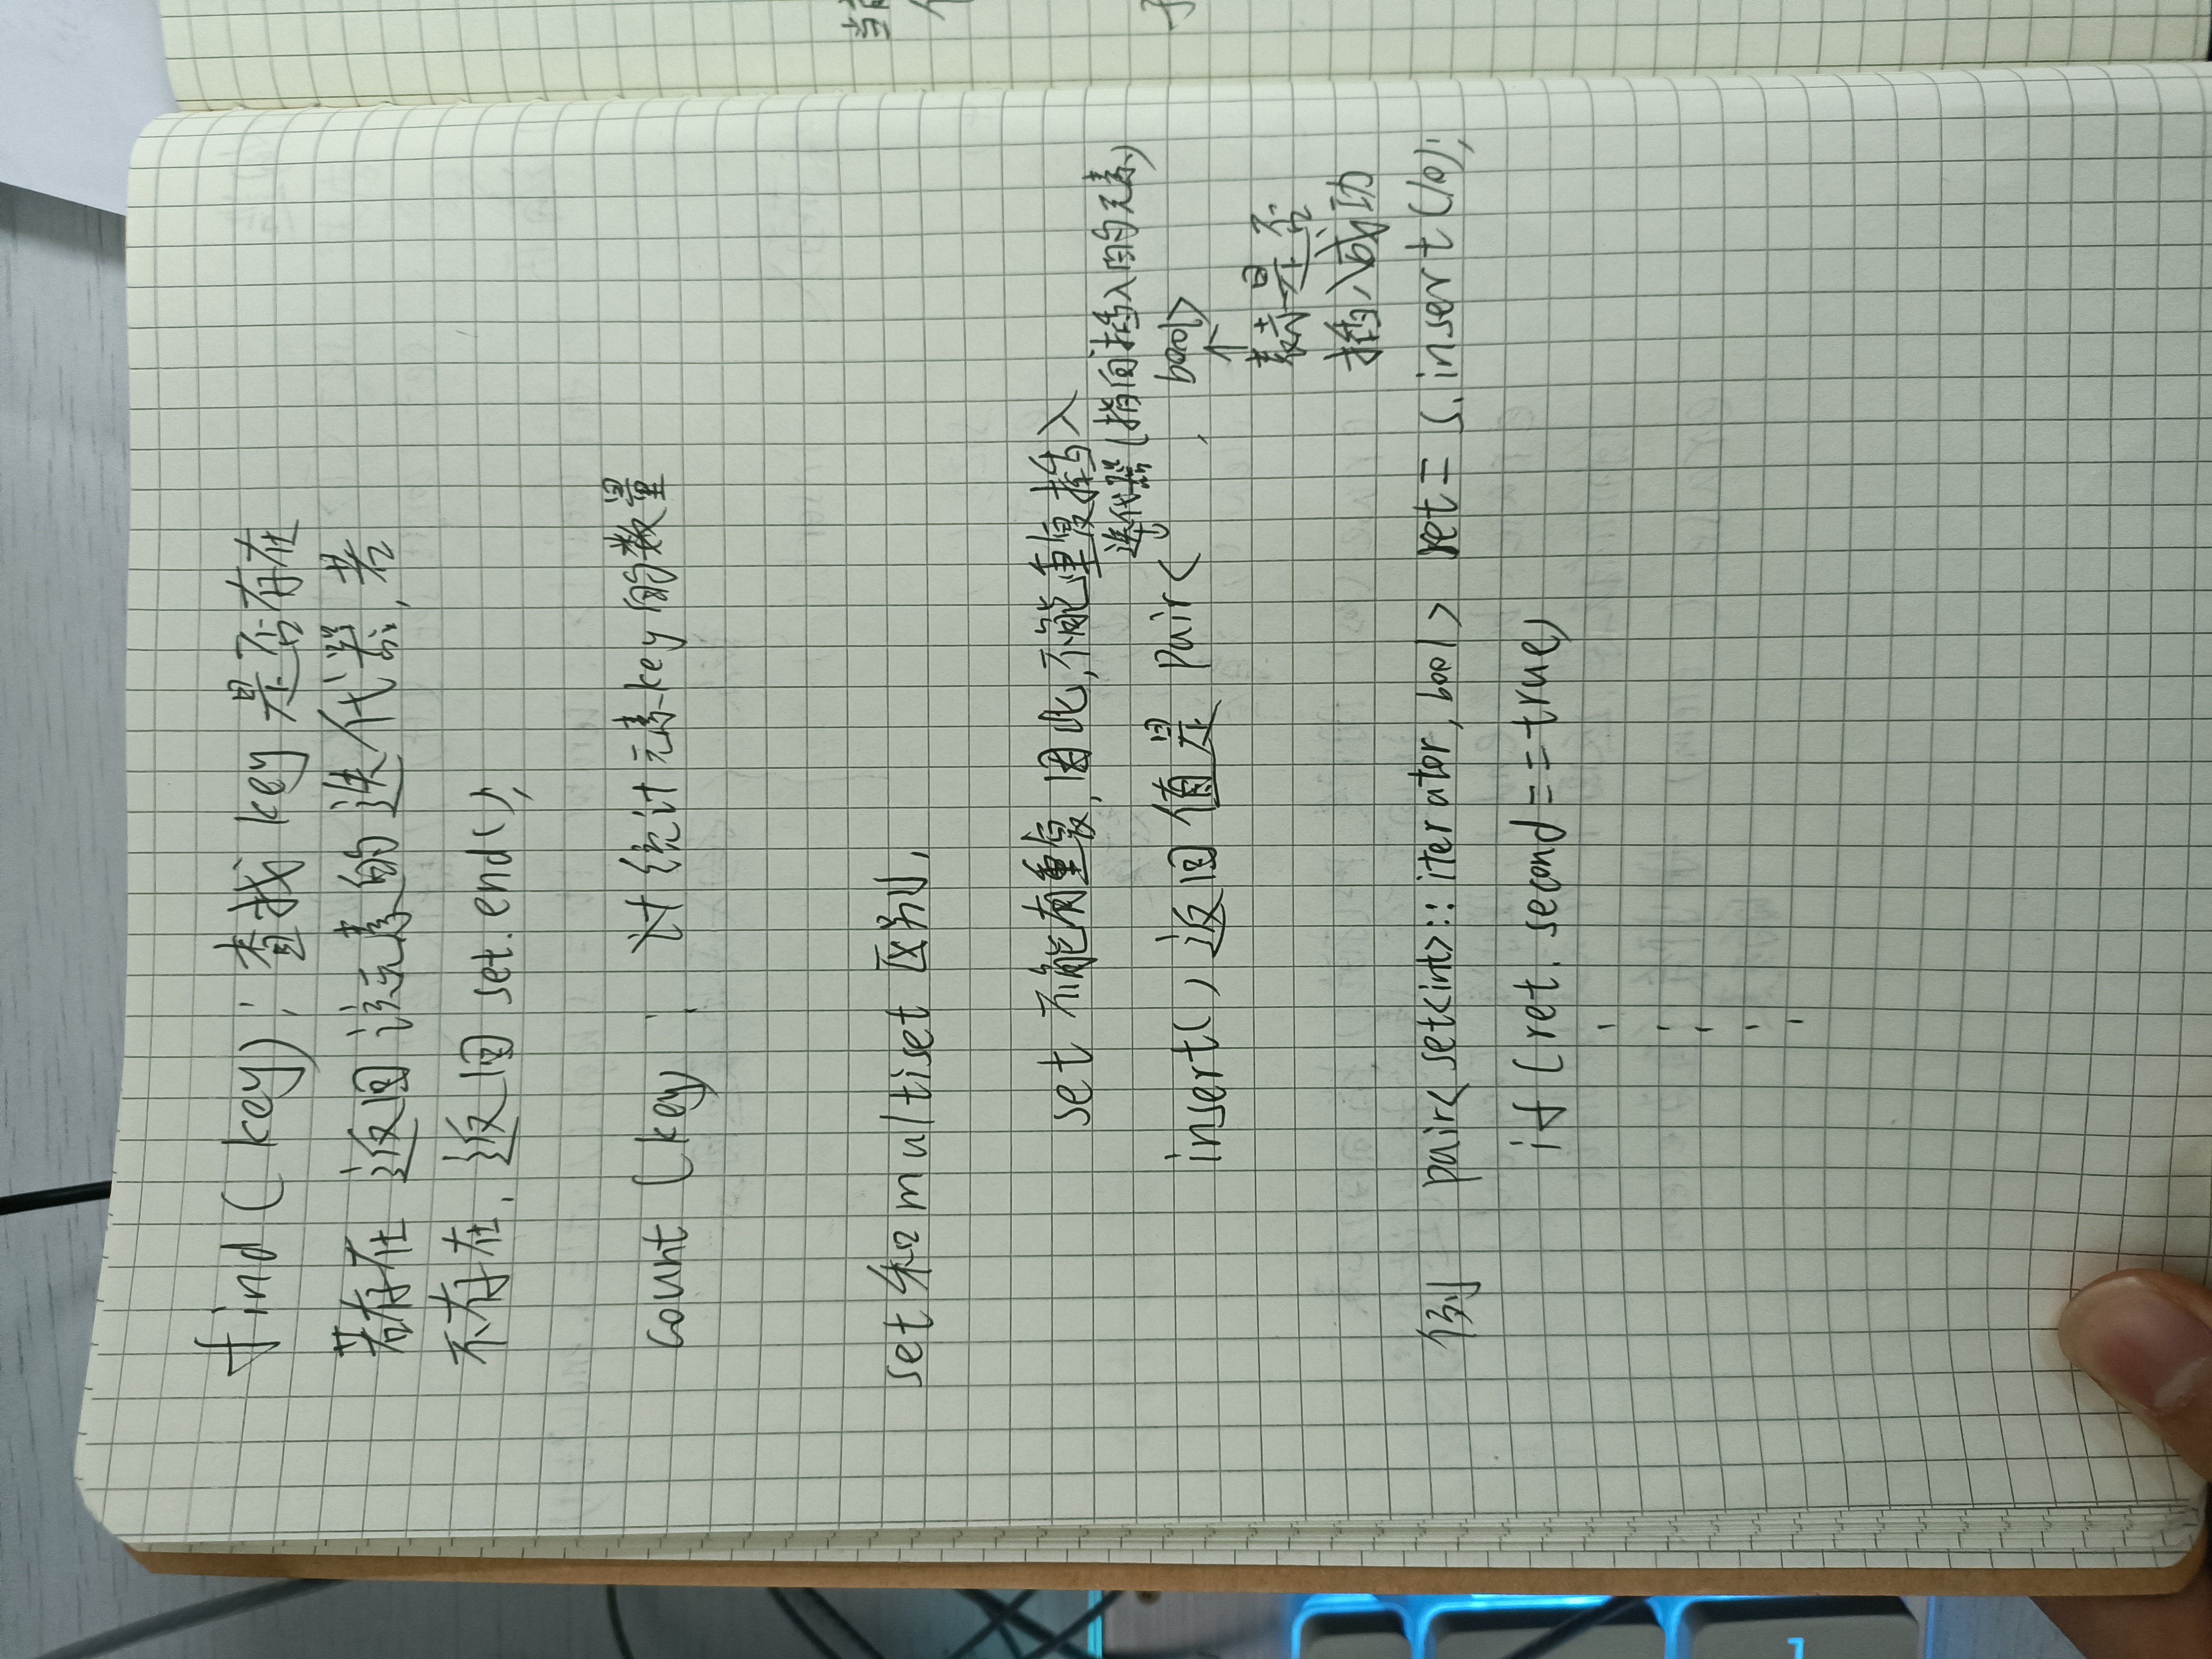 find(key); 查找key是否存在
若存在 返回该元素的迭代器,若
不存在,返回set.end();
count(key) : 计统计元素key的数量
set和multiset区别,
set 不能有重复,因此,不能重复插入
迭代器(指向插入的元素)
insert() 返回值是 pair< , bool>
↑
表示是否
插入成功
例 pair<set<int>::iterator, bool> ret = s.insert(10);
if (ret.second==true)
当前